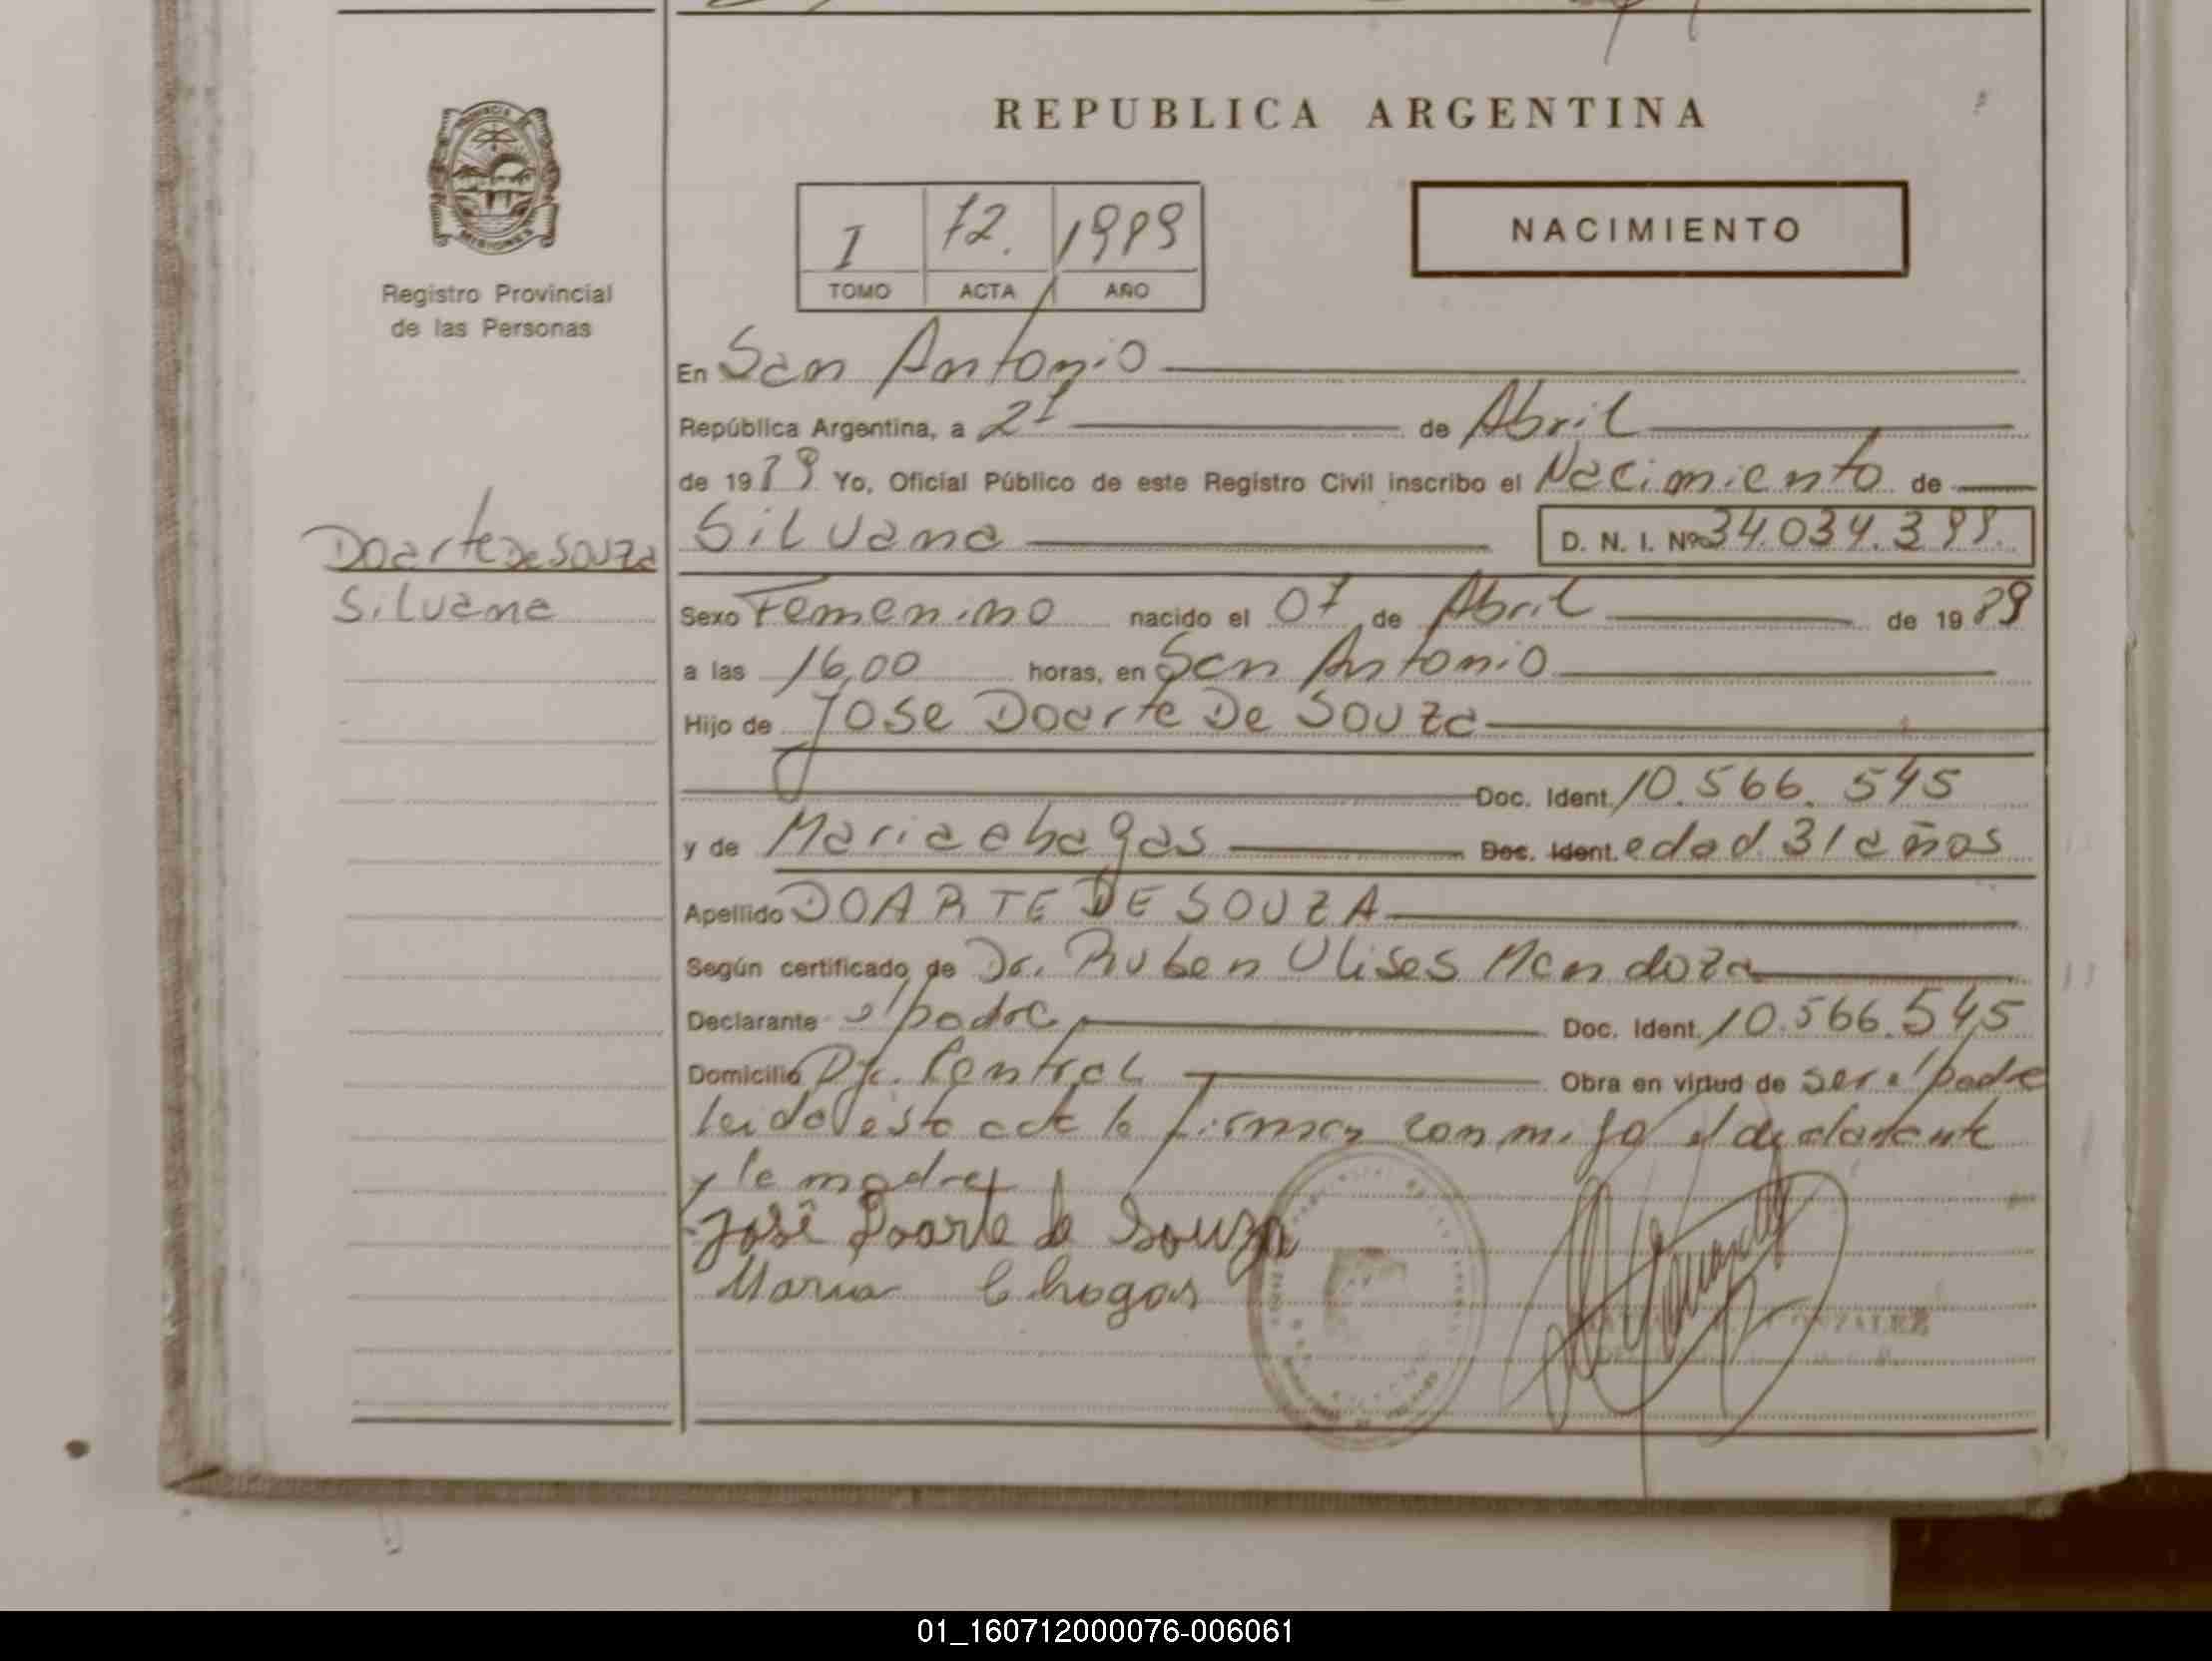 REPUBLICA ARGENTINA
PROVINCIA
MISIONES
Registro Provincial
de las Personas
I 72. 1989
TOMO ACTA AÑO
NACIMIENTO
En San Antonio
República Argentina, a 21 de Abril
de 1989 Yo, Oficial Público de este Registro Civil inscribo el Nacimiento de
Doarte De Souza
Silvana
Silvana D. N. I. Nº 34.034.399.
Sexo Femenino nacido el 07 de Abril de 1989
a las 16,00 horas, en San Antonio
Hijo de Jose Doarte De Souza
Doc. Ident. 10.566.545
y de Maria chagas Doc. Ident. edad 31 años
Apellido DOARTE DE SOUZA
Según certificado de Dr. Ruben Ulises Mendoza
Declarante el padre Doc. Ident. 10.566.545
Domicilio Pje. Central Obra en virtud de ser el padre
leida esta acta la firman conmigo el declarante
y la madre
José Doarte de Souza
Maria Chagas
GONZALEZ
01_160712000076-006061